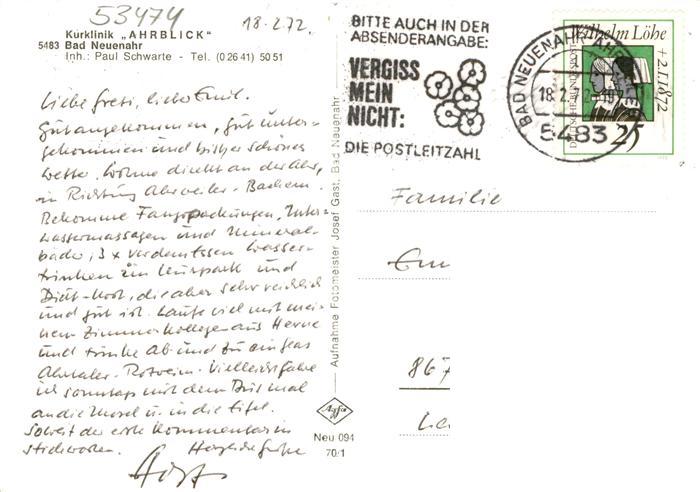 53474
18.2.72.
Kurklinik „AHRBLICK"
5483 Bad Neuenahr
Inh.: Paul Schwarte - Tel. (0 26 41) 50 51
Liebe Greti, lieber Emil.
Gut angekommen, gut unter-
gekommen und bisher schönes
Wetter. Wohne direkt an der Ahr,
in Richtung Ahrweiler - Bachem.
Bekomme Fangopackungen, Unter-
wassermassagen und Mineral-
bäder, 3 x vor dem Essen Wasser-
trinken im Kurpark und
Diät-Kost, die aber sehr reichlich
und gut ist. Laufe viel mit mei-
nem Zimmerkollegen aus Herne
und trinke Ab und zu ein Glas
Ahrtaler-Rotwein. Vielleicht fahre
ich sonntags mit dem Bus mal
an die Mosel u. in die Eifel.
Soweit der erste Kommentar in
Stichworten. Herzliche Grüße
Aufnahme Fotomeister Josef Gast, Bad Neuenahr
Agfa
Neu 094
70/1
BITTE AUCH IN DER
ABSENDERANGABE:
VERGISS
MEIN
NICHT:
DIE POSTLEITZAHL
BAD NEUENAHR-AHRWEILER
18.2.72
5483
Wilhelm Löhe
+2.1.1872
DEUTSCHE BUNDESPOST
25
Familie
Em
867